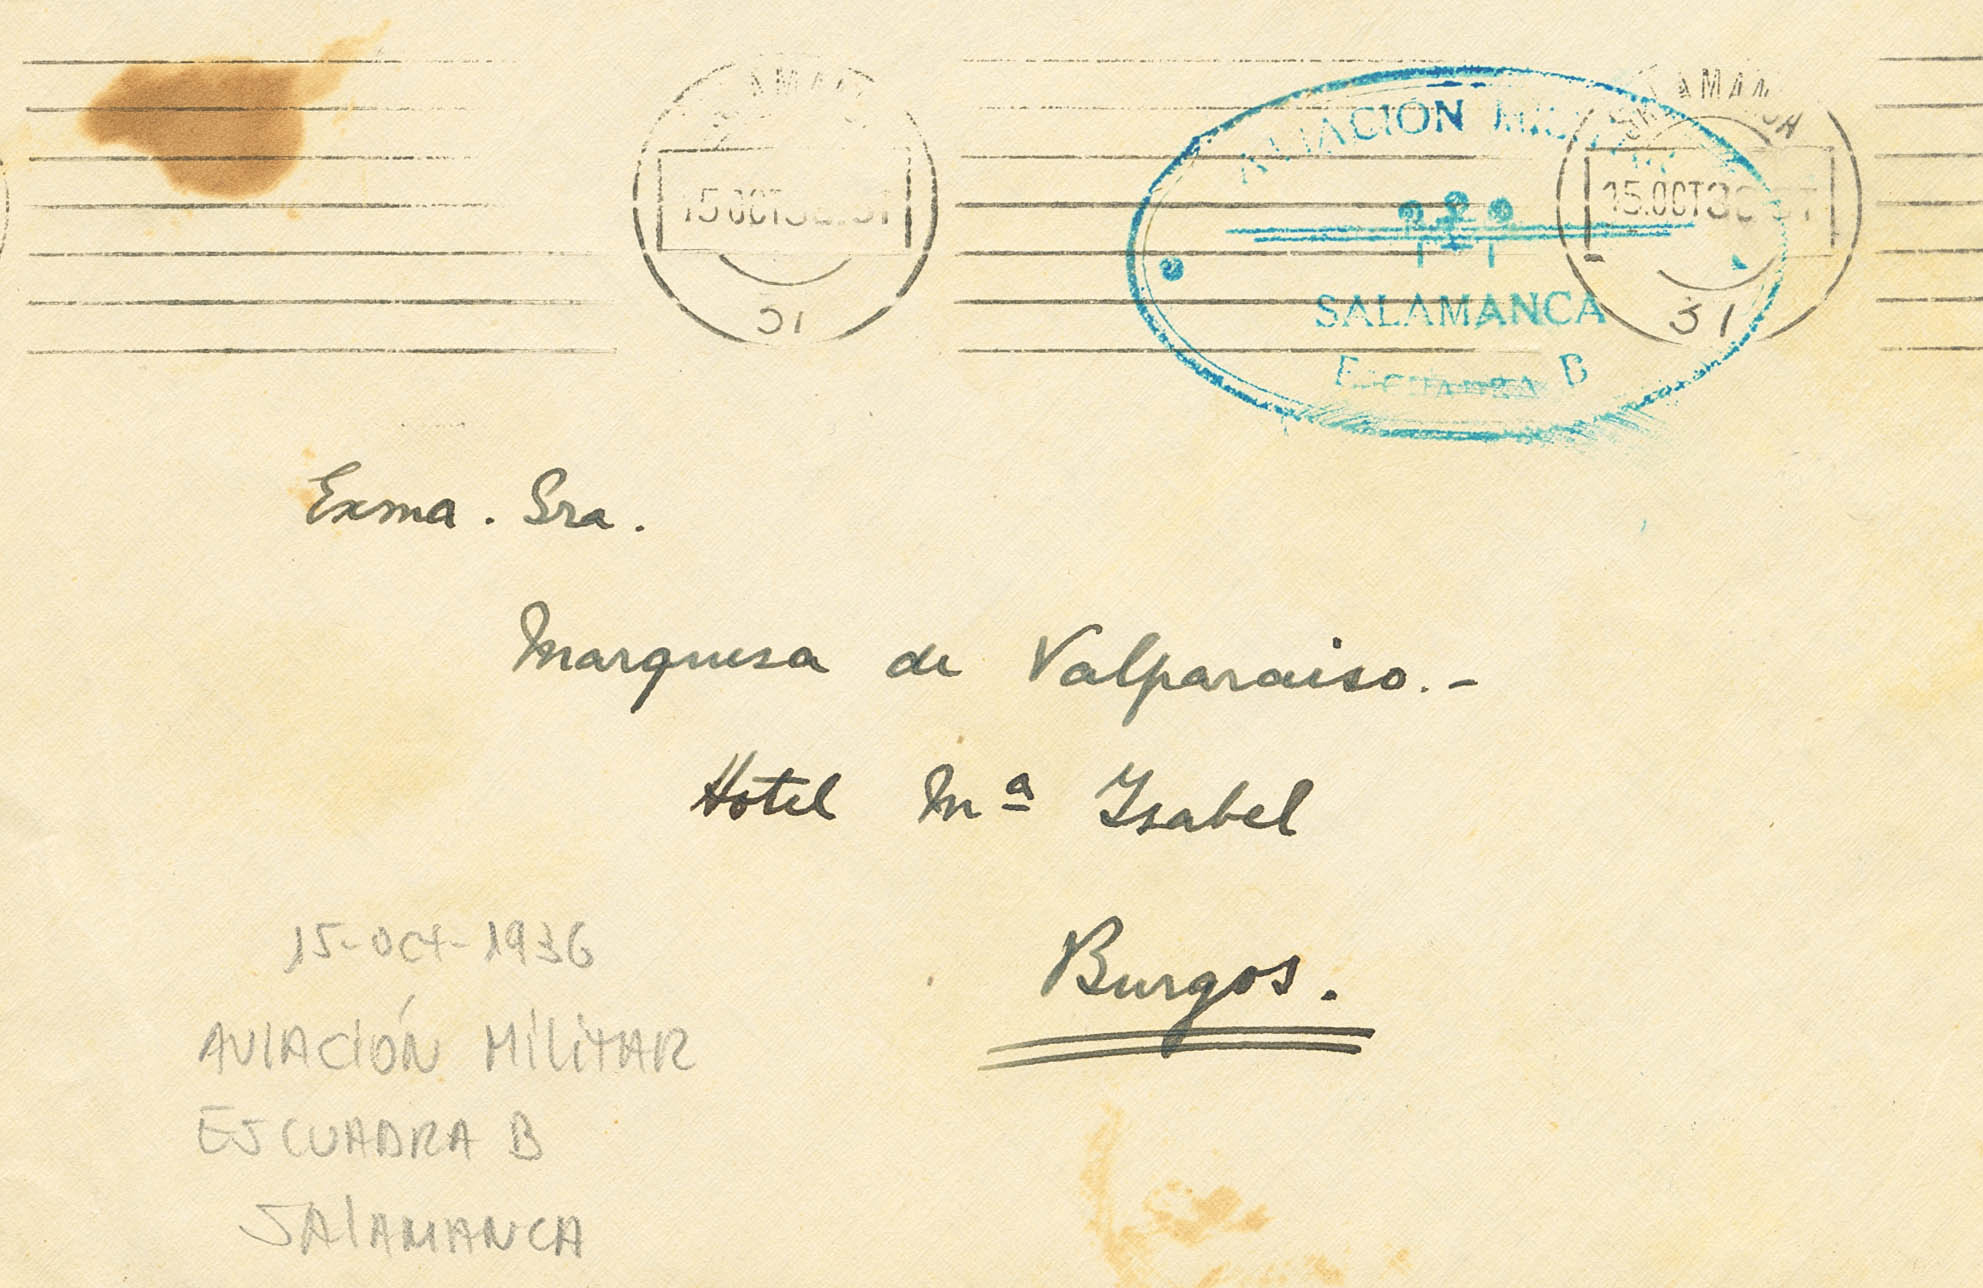 SALAMANCA
15 OCT
31
AVIACION MILITAR
SALAMANCA
ESCUADRA B
SALAMANCA
15.OCT
31
Exma. Sra.
Marquesa de Valparaiso.-
Hotel Mª Isabel
Burgos.
15-oct-1936
AVIACIÓN MILITAR
ESCUADRA B
SALAMANCA